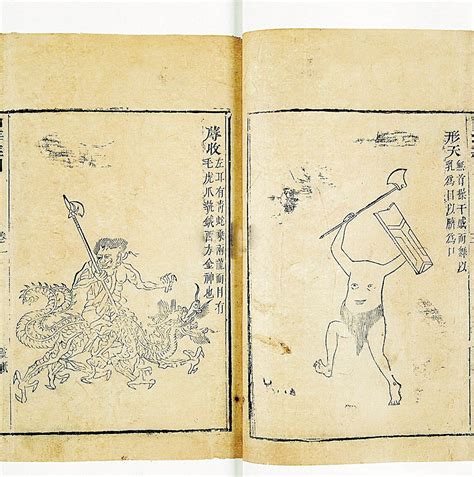 形天
無首操干戚而舞以
乳為目以臍為口
蓐收
左耳有青蛇乘兩龍面目有
毛虎爪執鉞西方金神也